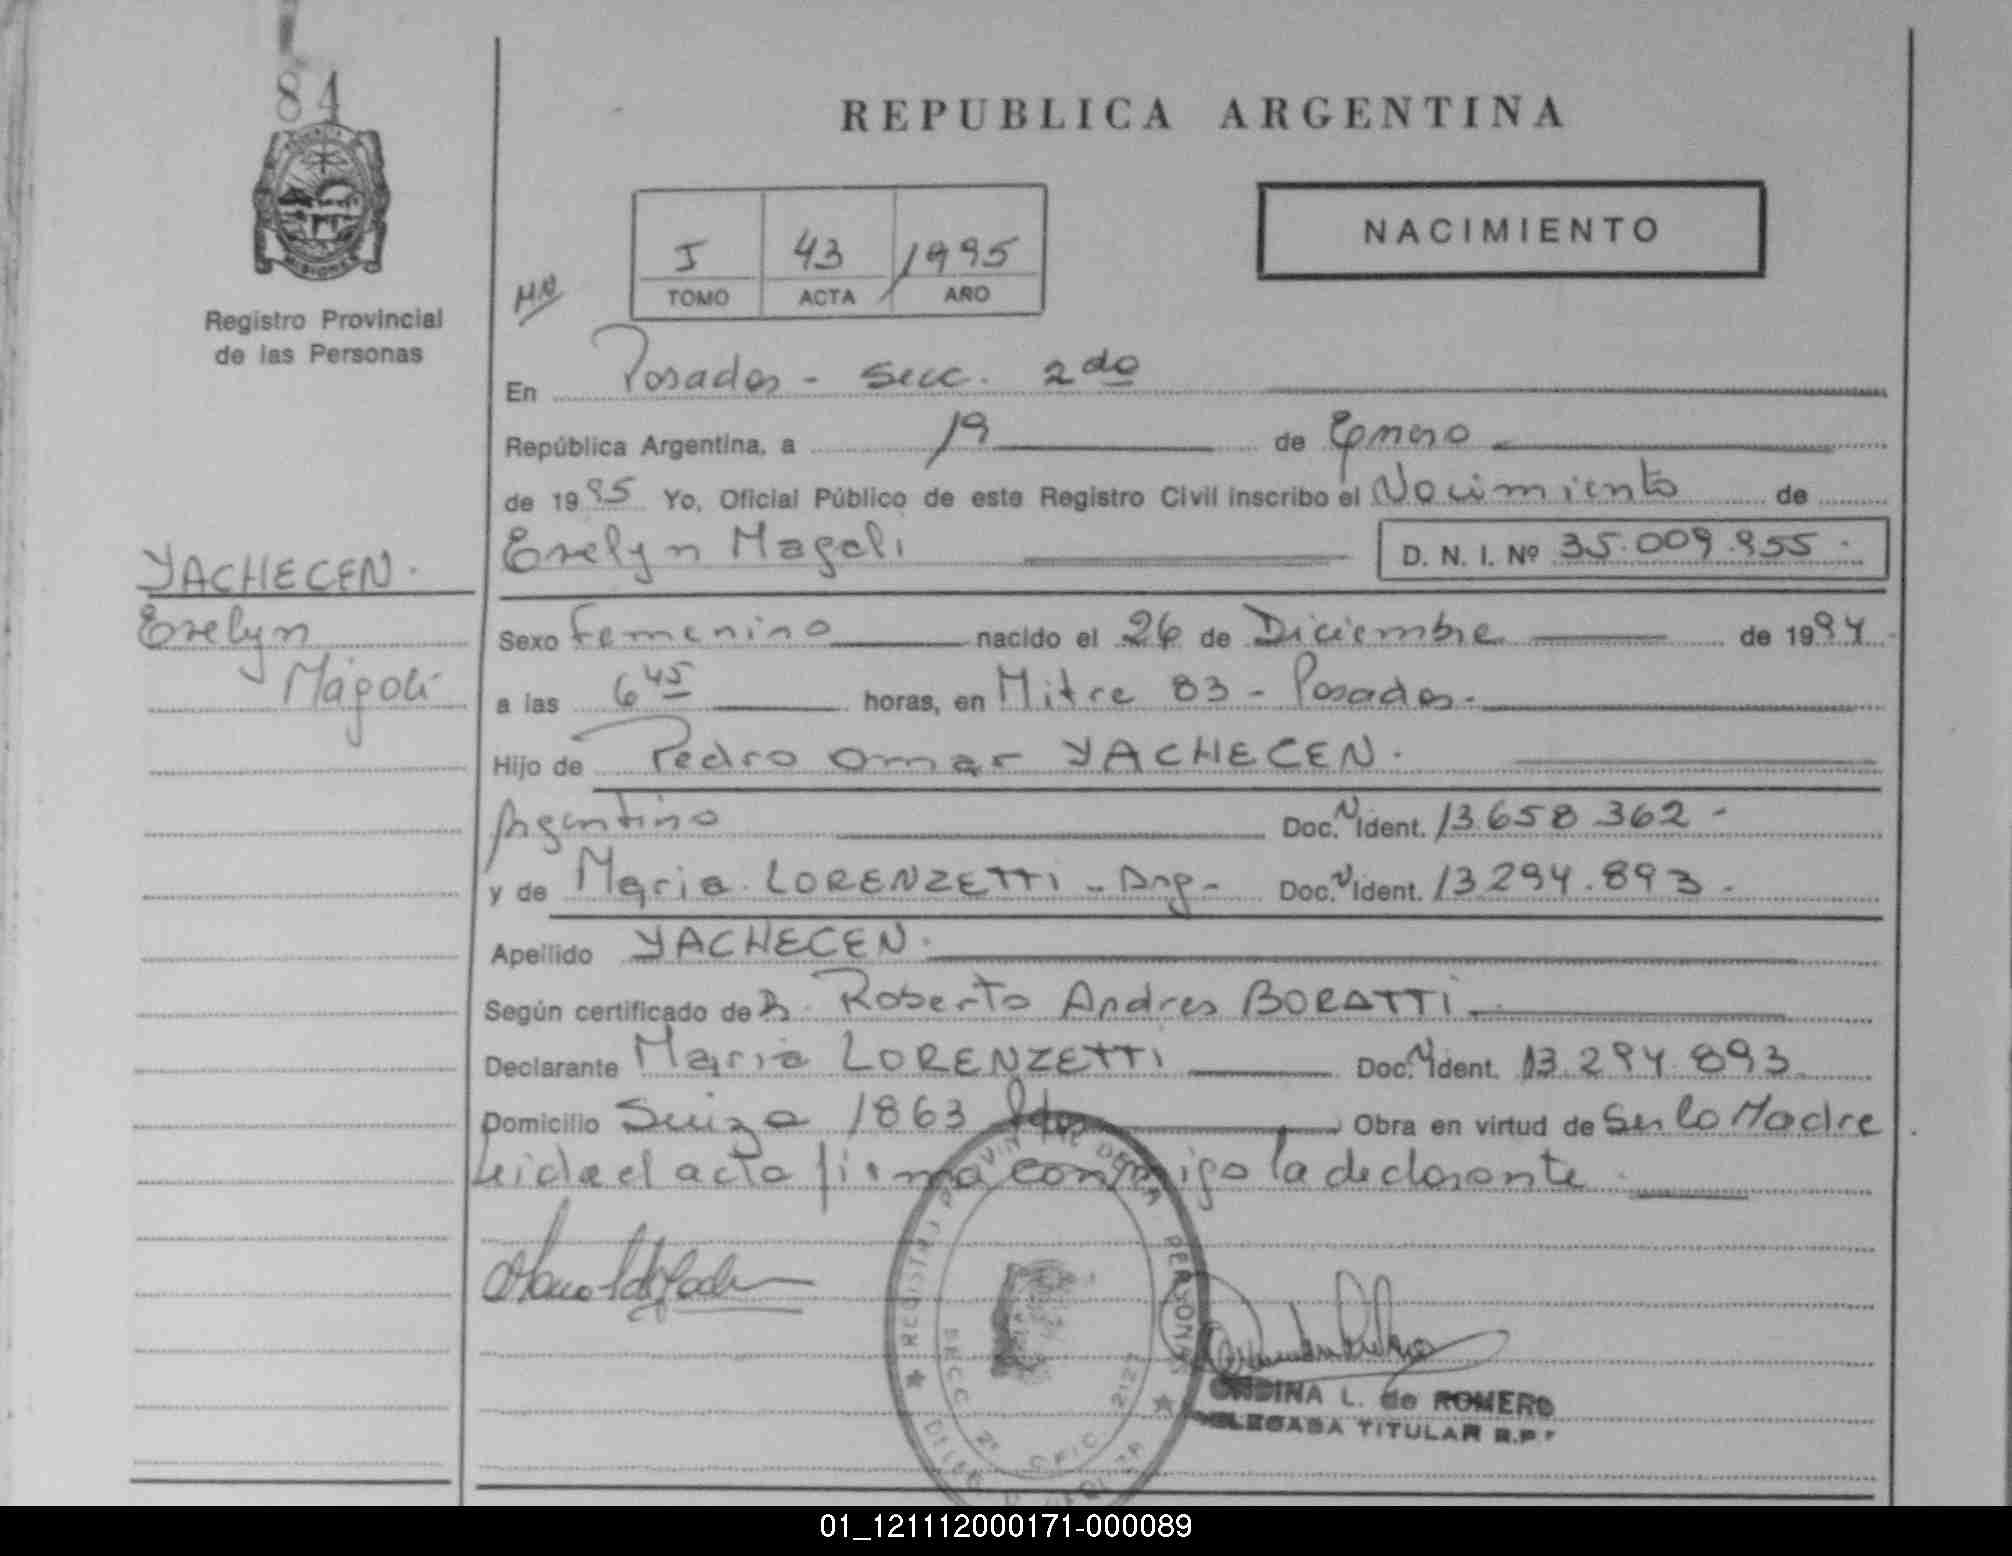 84
REPUBLICA ARGENTINA
NACIMIENTO
I 43 1995
TOMO ACTA AÑO
Registro Provincial
de las Personas
MISIONES
En Posadas - Secc. 2da
República Argentina, a 19 de Enero
de 1995 Yo, Oficial Público de este Registro Civil inscribo el Nacimiento de
Evelyn Magali D. N. I. Nº 35.009.955.
YACHECEN.
Evelyn
Magali
Sexo Femenino nacido el 26 de Diciembre de 1994
a las 6 45 horas, en Mitre 83 - Posadas.
Hijo de Pedro Omar YACHECEN.
Argentino Doc. N Ident. 13.658.362 -
y de Maria LORENZETTI - Arg - Doc. N Ident. 13.294.893.
Apellido YACHECEN.
Según certificado de Dr. Roberto Andres BORATTI
Declarante Maria LORENZETTI Doc. N Ident. 13.294.893
Domicilio Suiza 1863 Pdas Obra en virtud de Ser la Madre
Leida el acta firma conmigo la declarante
REGISTRO PROVINCIAL DE LAS PERSONAS
SECC. 2ª OFIC. 212
ONDINA L. de ROMERO
DELEGADA TITULAR R.P.
01_121112000171-000089